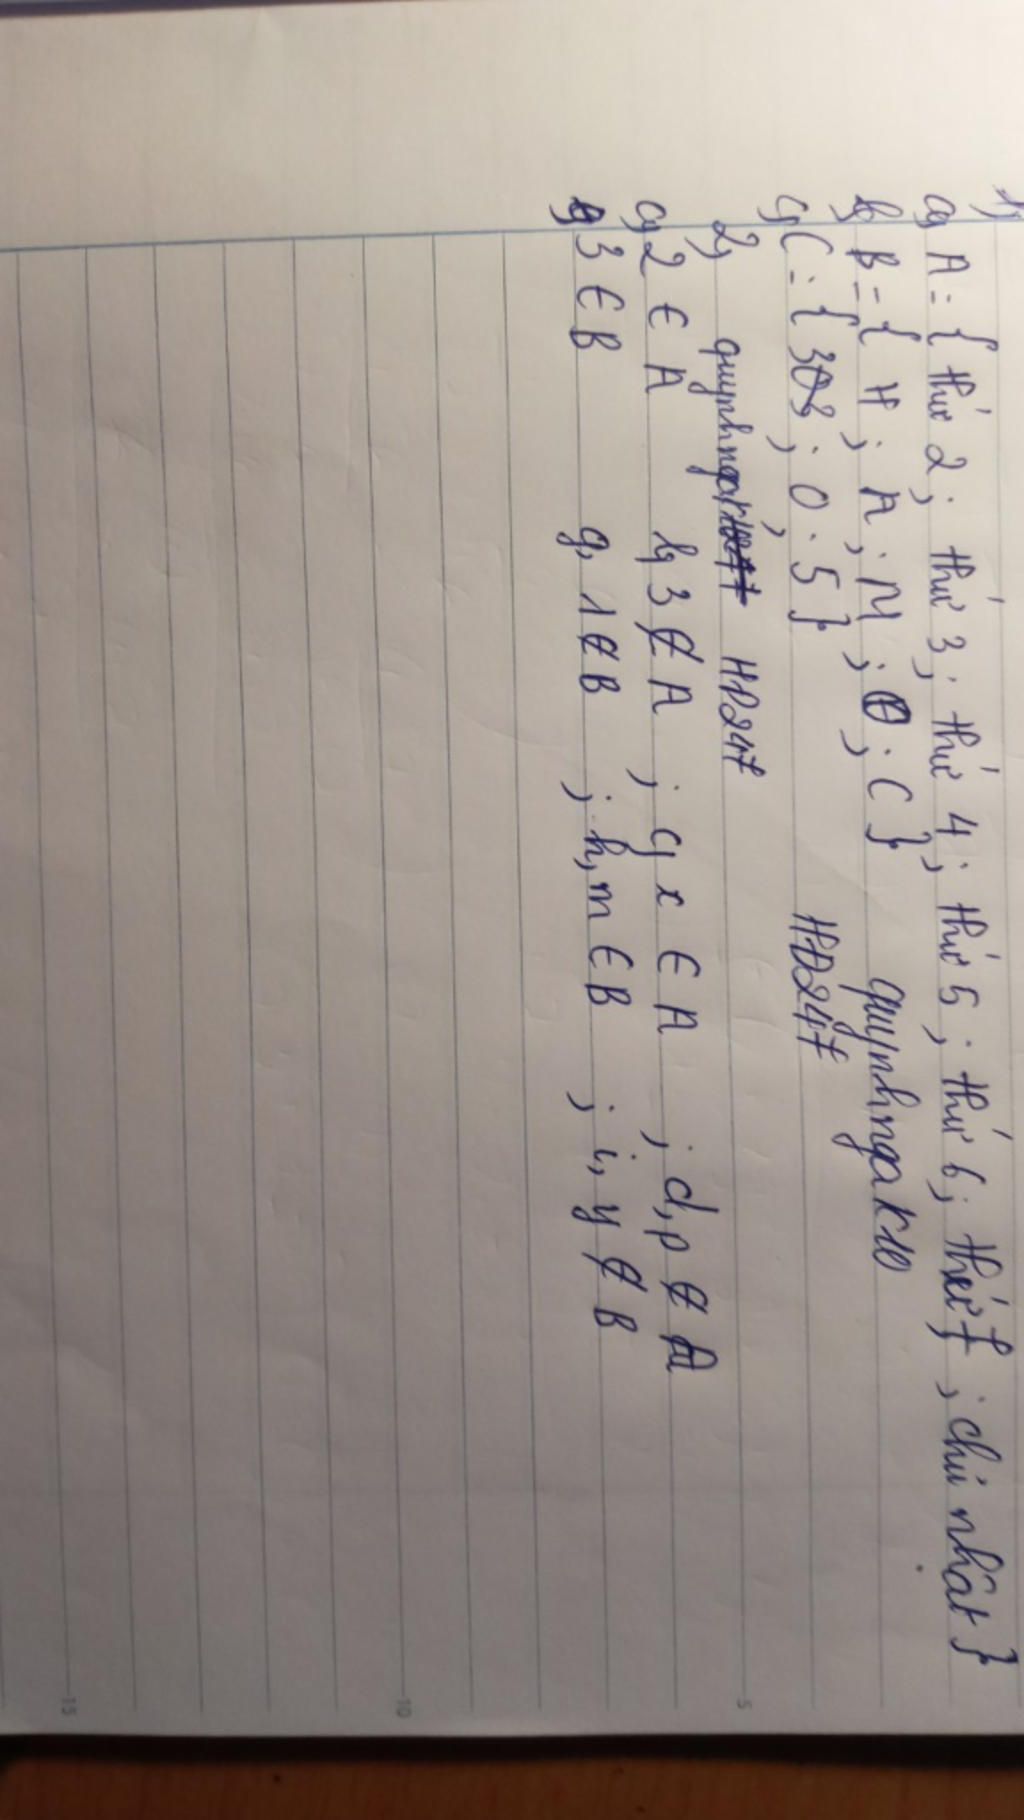 1,
a, A = { thứ 2 ; thứ 3 ; thứ 4 ; thứ 5 ; thứ 6 ; thứ 7 ; chủ nhật }
b, B = { H ; A ; M ; O ; C } quynhngak10
c, C = { 3 ; 0 ; 5 } HD247
2, quynhnga HD247
a, 2 ∈ A b, 3 ∉ A ; c, x ∈ A ; d, p ∉ A
3 ∈ B g, 1 ∉ B ; h, m ∈ B ; i, y ∉ B
5
10
15